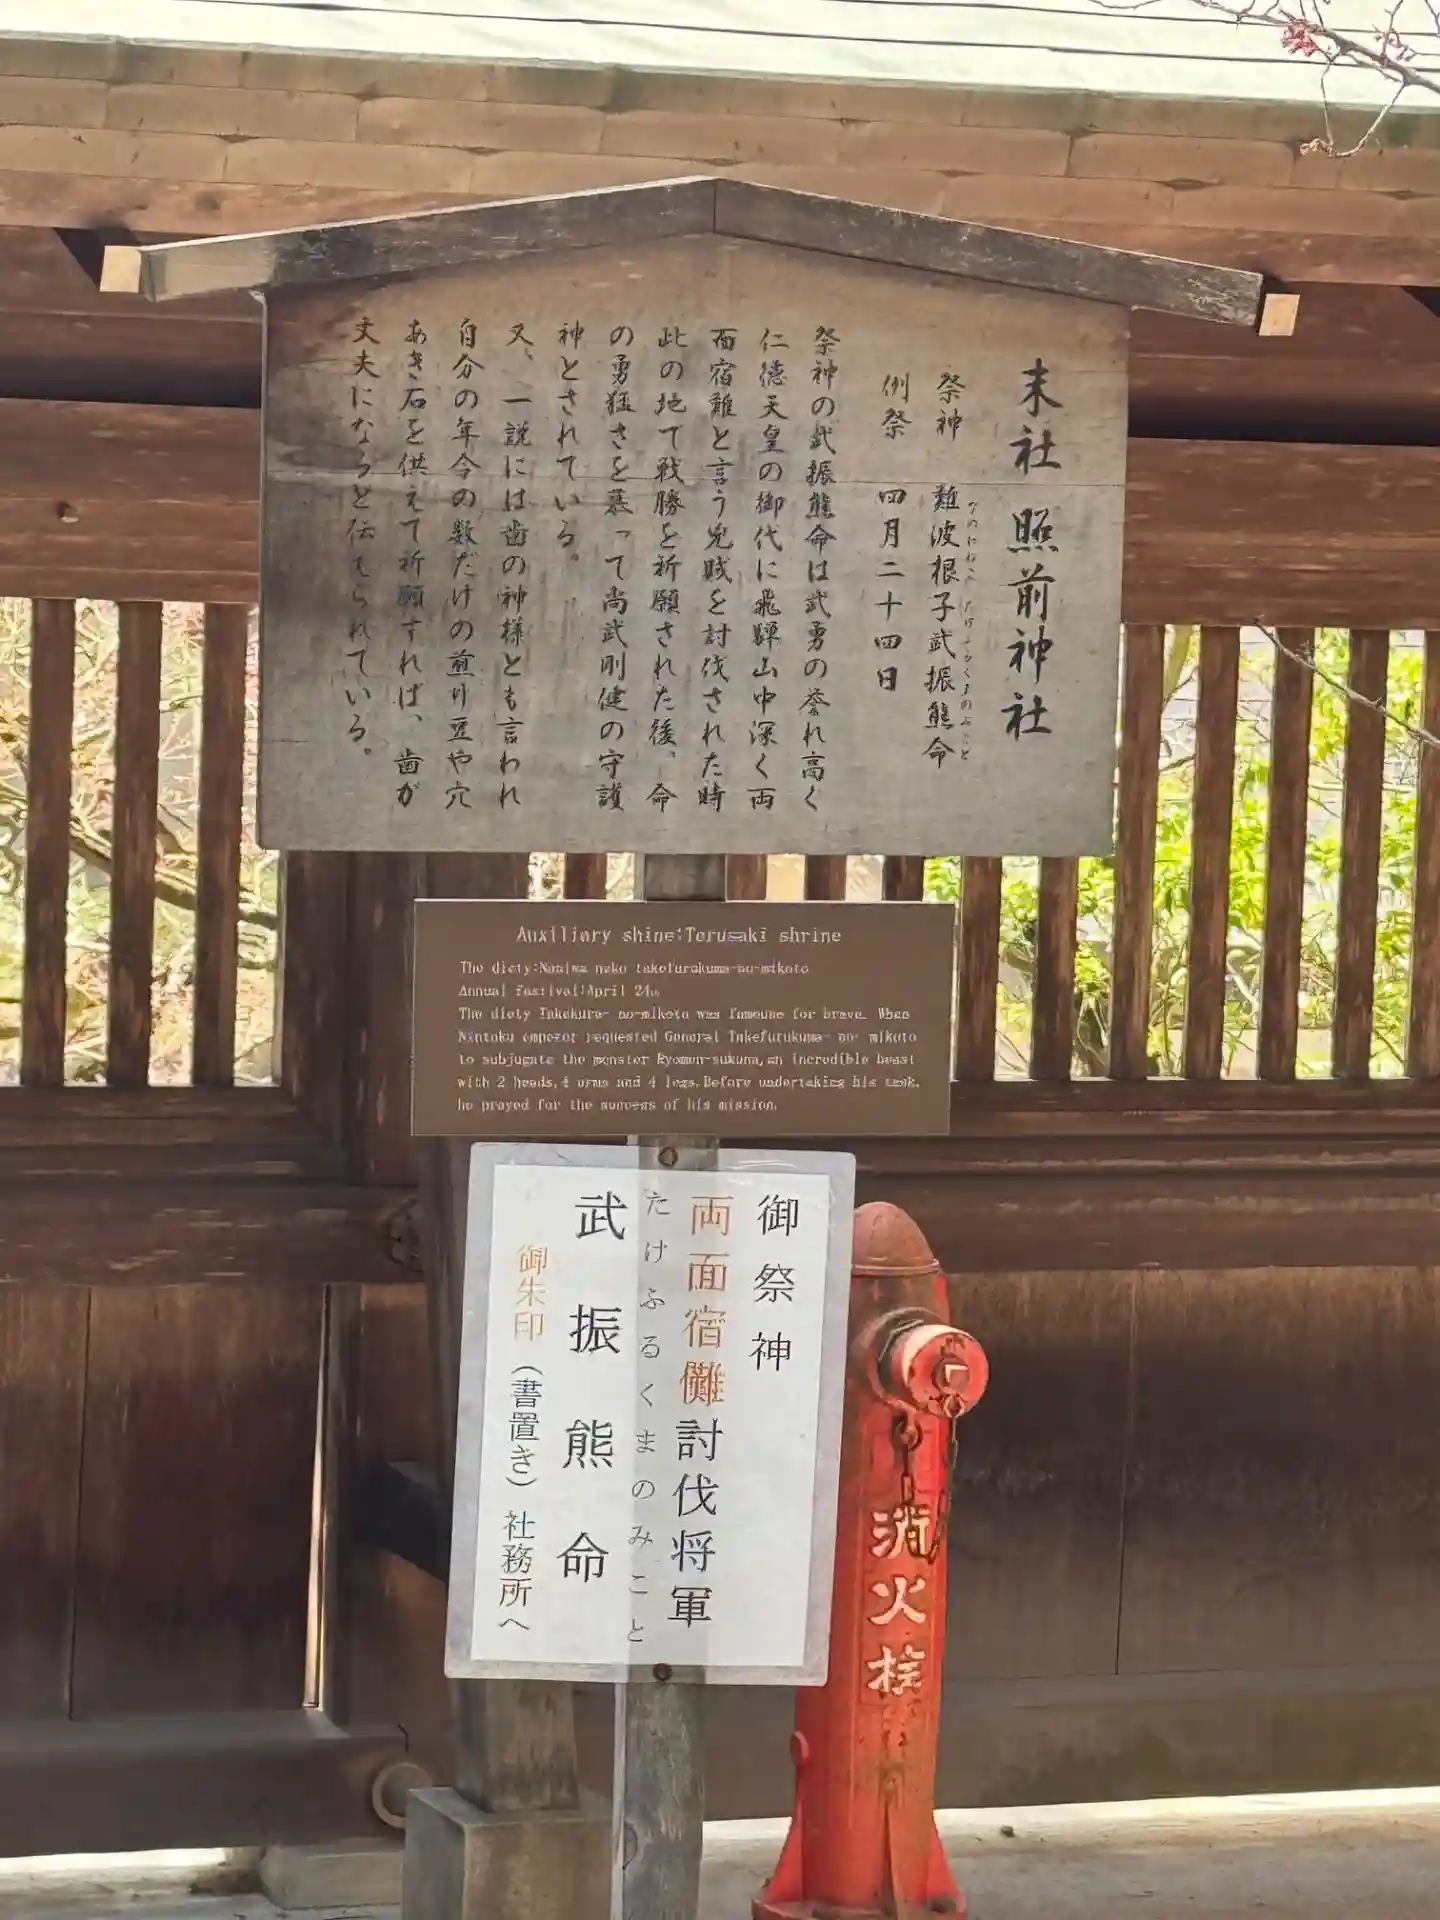 末社 照前神社
祭神 難波根子武振熊命
例祭 四月二十四日
祭神の武振熊命は武勇の誉れ高く
仁徳天皇の御代に飛騨山中深く両
面宿儺と言う兇賊を討伐された時
此の地で戦勝を祈願された後、命
の勇猛さを慕って尚武剛健の守護
神とされている。
又、一説には歯の神様とも言われ
自分の年令の数だけの煎り豆や穴
あき石を供えて祈願すれば、歯が
丈夫になると伝えられている。
Auxiliary shine:Terusaki shrine
The diety:Naniwa neko takefurukuma-no-mikoto
Annual festival:April 24th
The diety Takekura- no-mikoto was famouse for brave. When
Nintoku emperor requested General Takefurukuma- no- mikoto
to subjugate the monster Ryomen-sukuna,an incredible beast
with 2 heads,4 arms and 4 legs.Before undertaking his task,
he prayed for the success of his mission.
御祭神
両面宿儺討伐将軍
たけふるくまのみこと
武振熊命
御朱印(書置き)社務所へ
消火栓